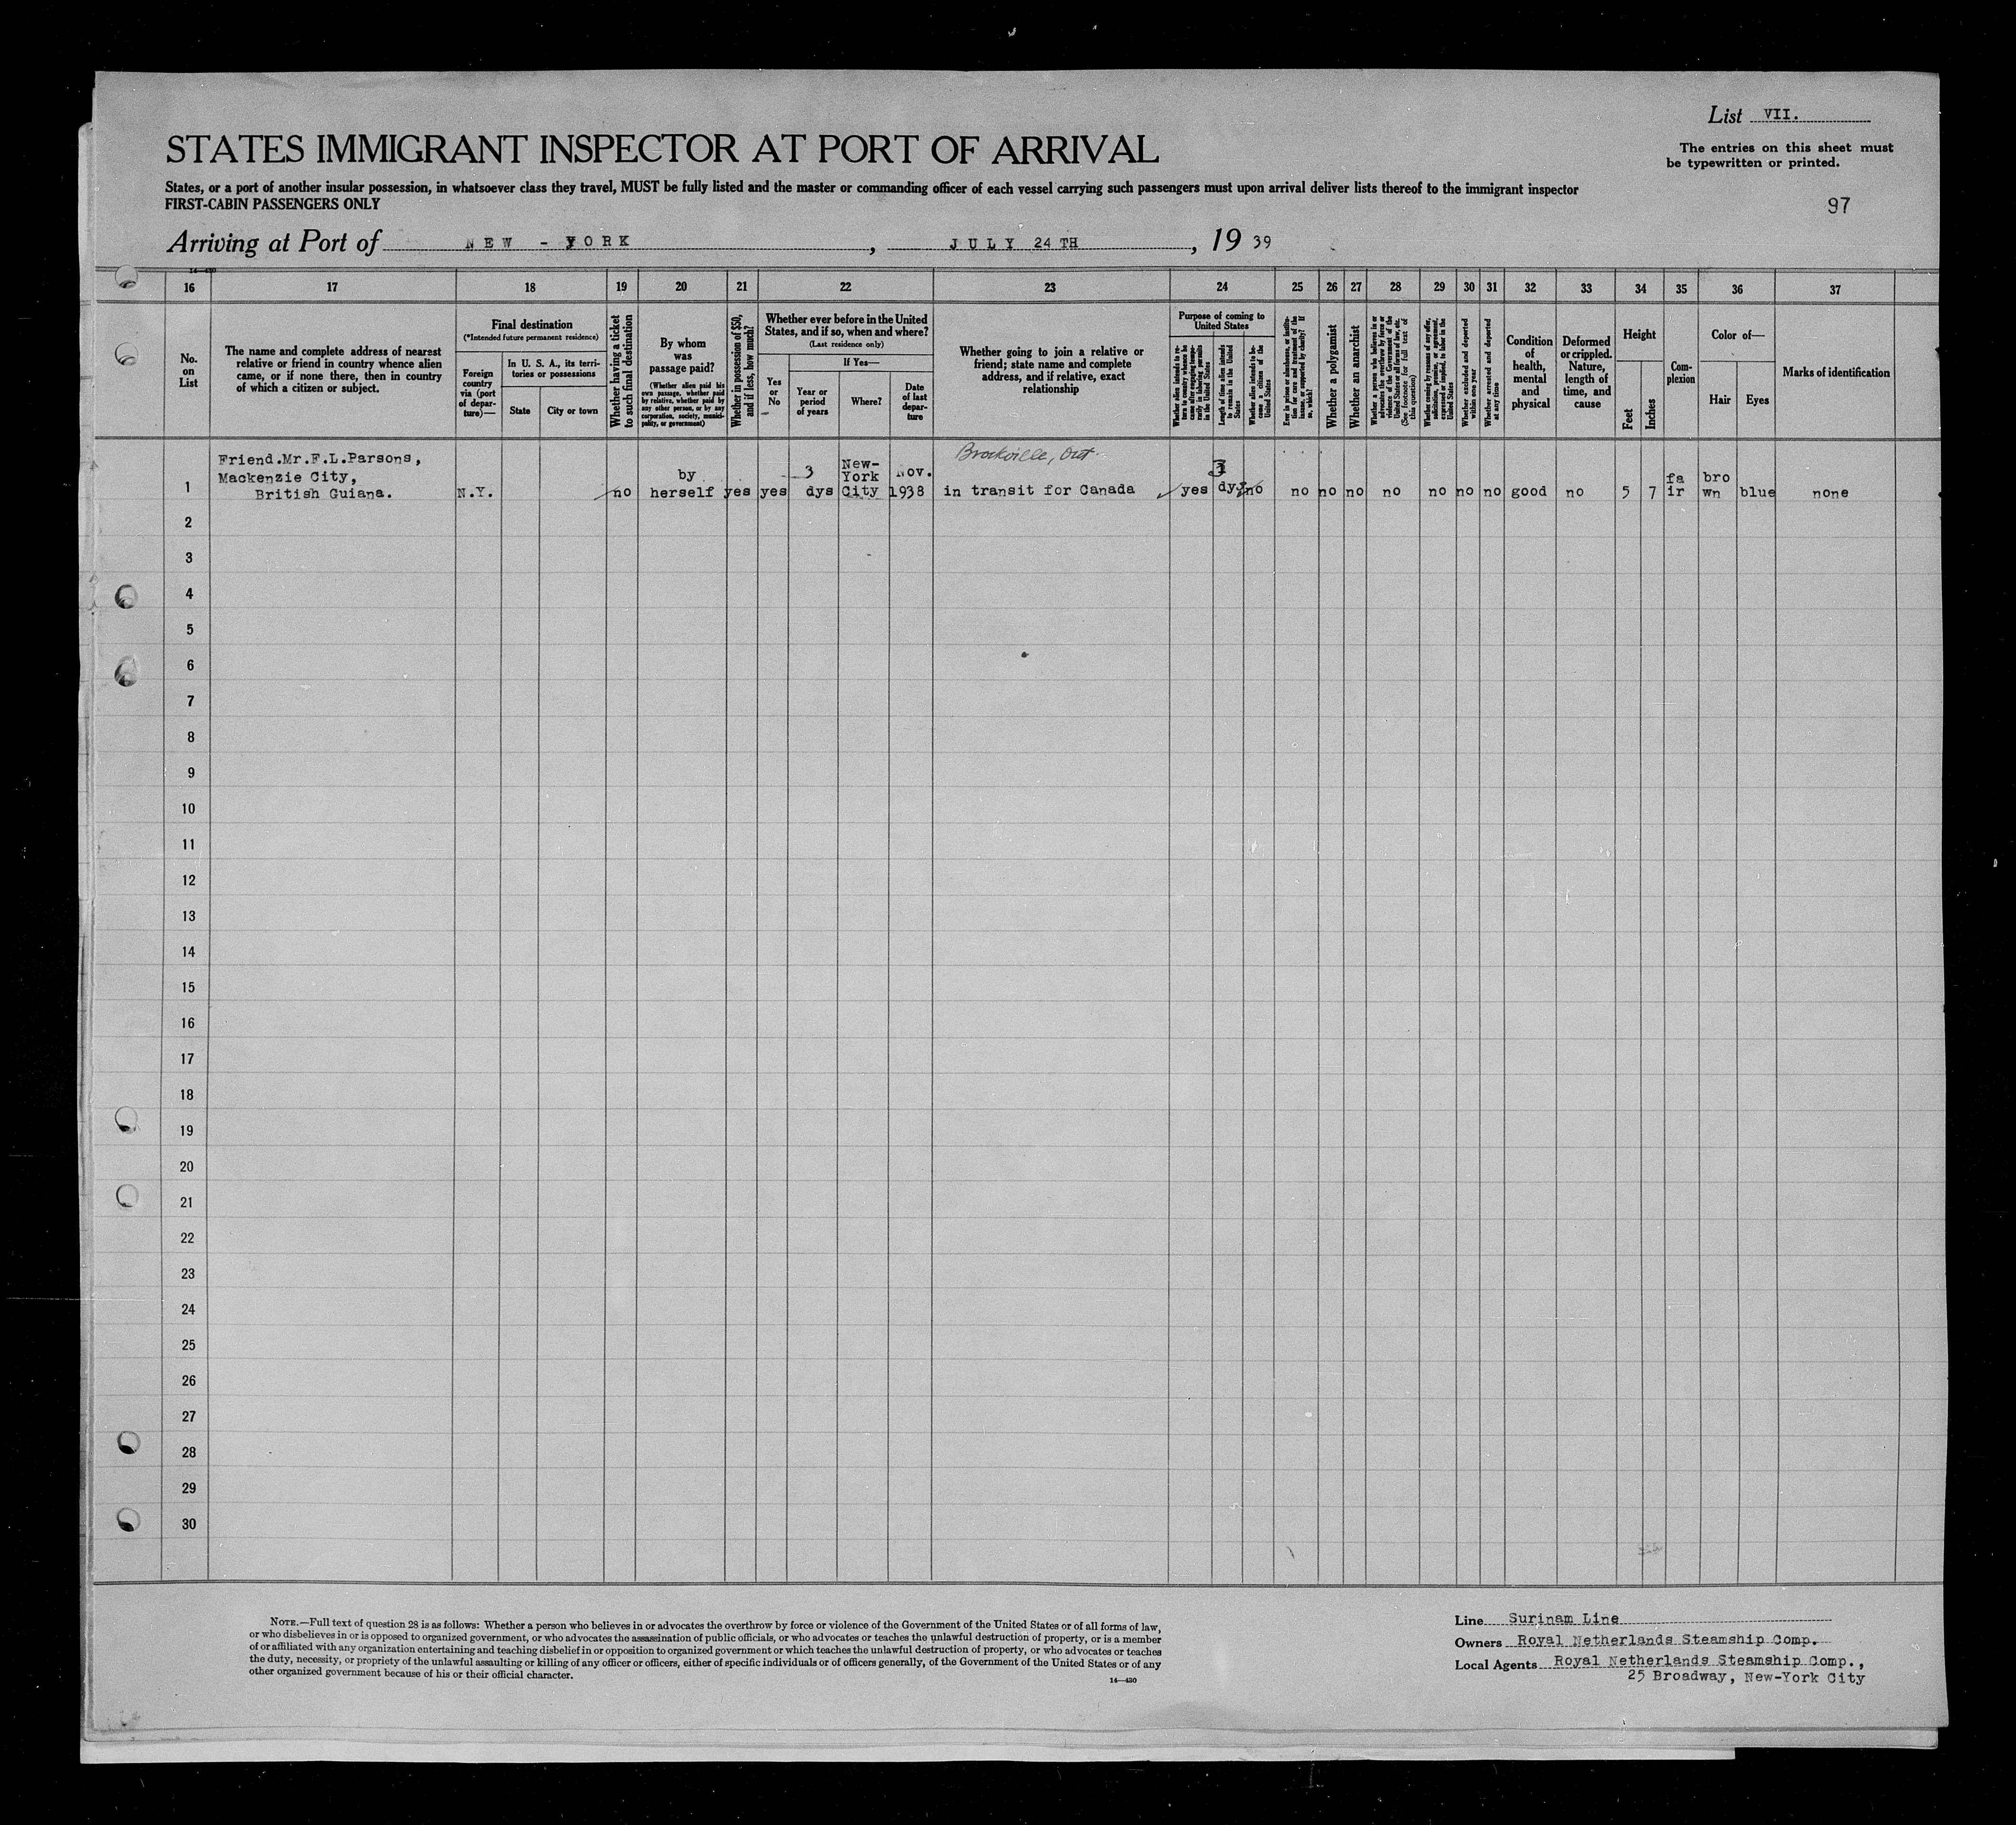 List VII.
STATES IMMIGRANT INSPECTOR AT PORT OF ARRIVAL
The entries on this sheet must
be typewritten or printed.
States, or a port of another insular possession, in whatsoever class they travel, MUST be fully listed and the master or commanding officer of each vessel carrying such passengers must upon arrival deliver lists thereof to the immigrant inspector
FIRST-CABIN PASSENGERS ONLY
97
Arriving at Port of NEW - YORK, JULY 24 TH, 19 39
16 17 18 19 20 21 22 23 24 25 26 27 28 29 30 31 32 33 34 35 36 37
No.
on
List
The name and complete address of nearest
relative or friend in country whence alien
came, or if none there, then in country
of which a citizen or subject.
Final destination
(*Intended future permanent residence)
Foreign
country
via (port
of depar-
ture)—
In U. S. A., its terri-
tories or possessions
State
City or town
Whether having a ticket
to such final destination
By whom
was
passage paid?
(Whether alien paid his
own passage, whether paid
by relative, whether paid by
any other person, or by any
corporation, society, munici-
pality, or government)
Whether in possession of $50,
and if less, how much?
Whether ever before in the United
States, and if so, when and where?
(Last residence only)
Yes
or
No
If Yes—
Year or
period
of years
Where?
Date
of last
depar-
ture
Whether going to join a relative or
friend; state name and complete
address, and if relative, exact
relationship
Purpose of coming to
United States
Whether alien intends to re-
turn to country whence he
came after engaging tempo-
rarily in laboring pursuits
in the United States
Length of time alien intends
to remain in the United
States
Whether alien intends to be-
come a citizen of the
United States
Ever in prison or almshouse, or institu-
tion for care and treatment of the
insane, or supported by charity? If
so, which?
Whether a polygamist
Whether an anarchist
Whether a person who believes in or
advocates the overthrow by force or
violence of the Government of the
United States or all forms of law, etc.
(See footnote for full text of
this question)
Whether coming by reason of any offer,
solicitation, promise, or agreement,
expressed or implied, to labor in the
United States
Whether excluded and deported
within one year
Whether arrested and deported
at any time
Condition
of
health,
mental
and
physical
Deformed
or crippled.
Nature,
length of
time, and
cause
Height
Feet
Inches
Com-
plexion
Color of—
Hair
Eyes
Marks of identification
Friend.Mr.F.L.Parsons,
Mackenzie City,
British Guiana.
Brockville, Ont.
1 N.Y. no by herself yes yes 3 dys New-York City Nov. 1938 in transit for Canada yes 3 dys no no no no no no no no good no 5 7 fair brown blue none
2
3
4
5
6
7
8
9
10
11
12
13
14
15
16
17
18
19
20
21
22
23
24
25
26
27
28
29
30
NOTE.—Full text of question 28 is as follows: Whether a person who believes in or advocates the overthrow by force or violence of the Government of the United States or of all forms of law,
or who disbelieves in or is opposed to organized government, or who advocates the assassination of public officials, or who advocates or teaches the unlawful destruction of property, or is a member
of or affiliated with any organization entertaining and teaching disbelief in or opposition to organized government or which teaches the unlawful destruction of property, or who advocates or teaches
the duty, necessity, or propriety of the unlawful assaulting or killing of any officer or officers, either of specific individuals or of officers generally, of the Government of the United States or of any
other organized government because of his or their official character.
14—430
Line Surinam Line
Owners Royal Netherlands Steamship Comp.
Local Agents Royal Netherlands Steamship Comp.,
25 Broadway, New-York City